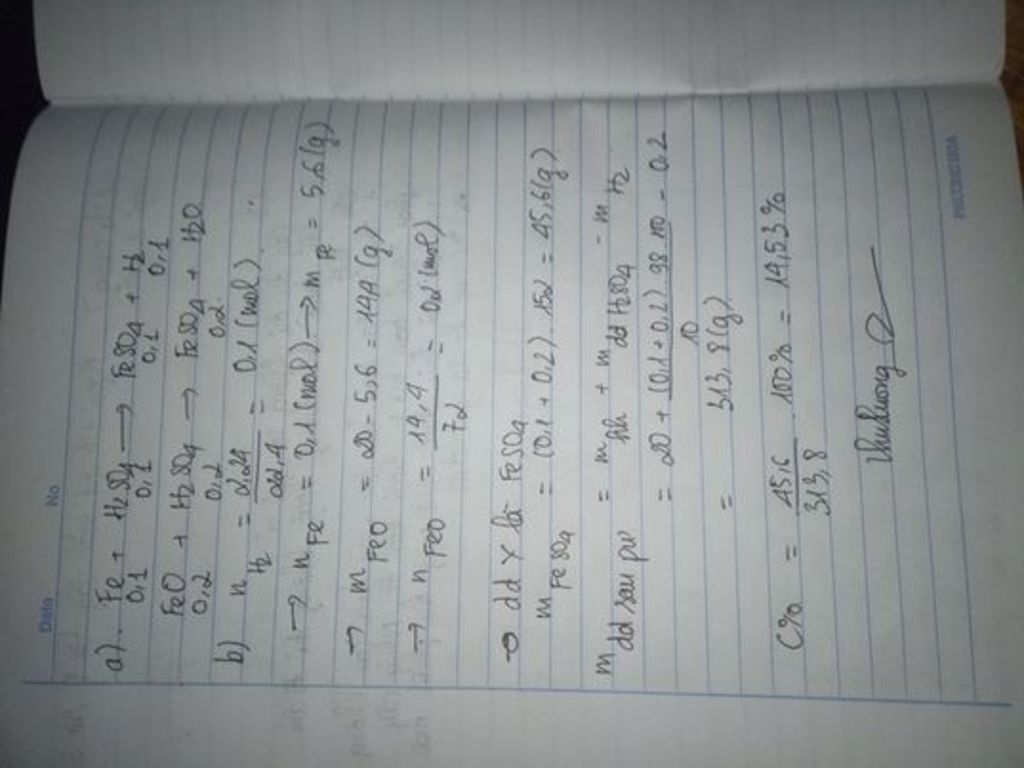 Date No
a). Fe + H2SO4 → FeSO4 + H2
0,1 0,1 0,1 0,1
FeO + H2SO4 → FeSO4 + H2O
0,2 0,2 0,2
b) nH2 = 2,24 / 22,4 = 0,1 (mol)
→ nFe = 0,1 (mol) → mFe = 5,6 (g)
→ mFeO = 20 - 5,6 = 14,4 (g)
→ nFeO = 14,4 / 72 = 0,2 (mol)
→ dd Y là FeSO4
mFeSO4 = (0,1 + 0,2). 152 = 45,6 (g)
mdd sau pư = mhh + mdd H2SO4 - mH2
= 20 + (0,1 + 0,2) 98 .10 / 10 - 0,2
= 313,8 (g)
C% = 45,6 / 313,8 . 100% = 14,53%